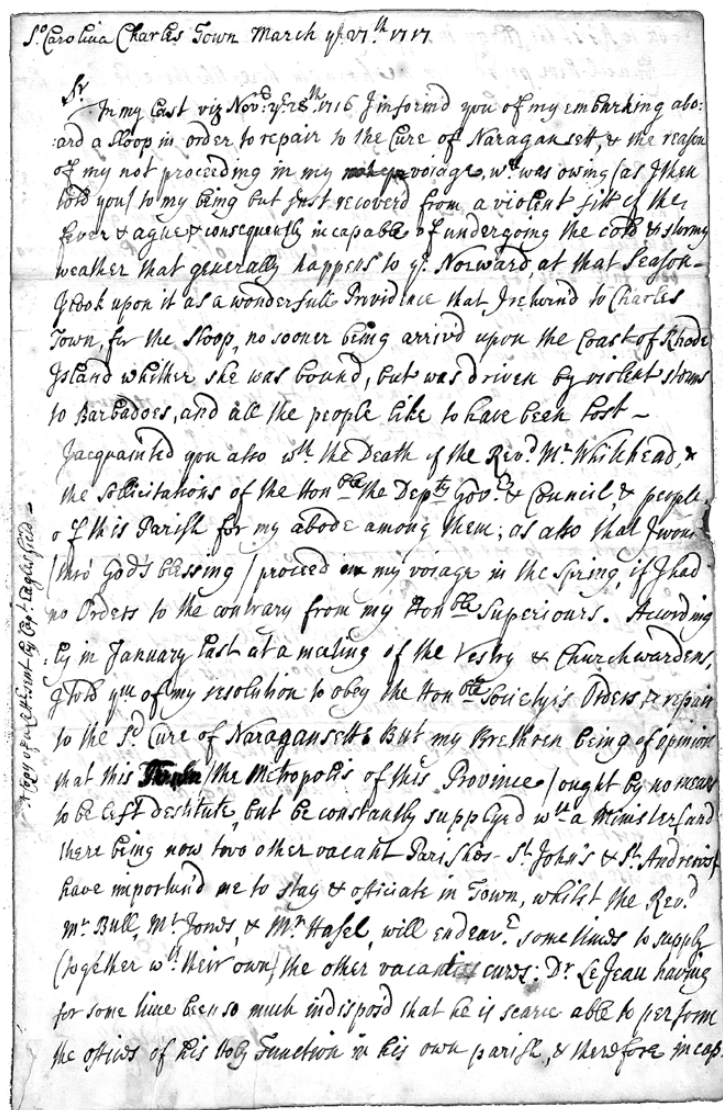 So Carolina Charles Town March ye 27th 1717
Sr
In my Last viz Novr ye 28th 1716 I inform'd you of my embarking abo:
:ard a Sloop in order to repair to the Cure of Naraganset, & the reason
of my not proceeding in my voiage, wch was owing (as I then
told you) to my being but just recoverd from a violent fitt of the
fever & ague & consequently incapable of undergoing the cold & stormy
weather that generally happens to ye Norward at that Season –
I look upon it as a wonderfull Providence that I return'd to Charles
Town, for the Sloop, no sooner being arriv'd upon the Coast of Rhode
Island whither she was bound, but was driven by violent storms
to Barbadoes, and all the people like to have been lost –
I acquainted you also wth the Death of the Revd Mr Whitehead, &
the Sollicitations of the Honble the Depty Govr & Council, & people
of this Parish for my abode among them; as also that I wou
(thro' God's blessing) proceed in my voiage in the Spring, if I had
no Orders to the contrary from my Honble Superiours. Acording
:ly in January last at a meeting of the Vestry & Churchwardens,
I told ym of my resolution to obey the Honble Society's Orders, & repair
to the sd Cure of Naragansett: But my Brethren being of opinion
that this (the Metropolis of this Province) ought by no means
to be left destitute, but be constantly supplyed wth a Minister (and
there being now two other vacant Parishes – St John's & St Andrew's)
have importun'd me to stay & officiate in Town, whilst the Revd
Mr Bull, Mr Jones, & Mr Hasel, will endeavr sometimes to supply
(together wth their own) the other vacant cures: Dr LeJeau having
for some time been so much indispos'd that he is scarce able to perform
the offices of his Holy Function in his own parish, & therefore incap
A Copy of a Lettr Sent by Capt Eaglesfield –